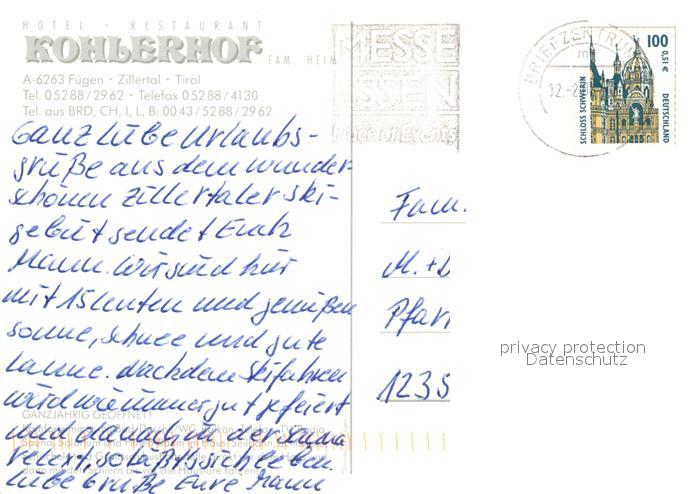 HOTEL - RESTAURANT
KOHLERHOF FAM. HEIM
A-6263 Fügen · Zillertal · Tirol
Tel. 05288/2962 · Telefax 05288/4130
Tel. aus BRD, CH, I, L, B: 0043/5288/2962
Ganz liebe Urlaubs-
grüße aus dem wunder-
schönen Zillertaler Ski-
gebiet sendet Euch
Mann. Wir sind hier
mit 15 Leuten und genießen
Sonne, Schnee und gute
Laune. Nachdem Skifahren
wird wie immer gut gefeiert
und danach in der Sauna
relaxt, so läßt's sich leben.
Liebe Grüße Eure Mann
GANZJÄHRIG GEÖFFNET!
MESSE
ESSEN
Place of Events
BRIEFZENTRUM
12.-2
100
0,51 €
SCHLOSS SCHWERIN
DEUTSCHLAND
Fam.
M. + D
Pfarr
1235
privacy protection
Datenschutz